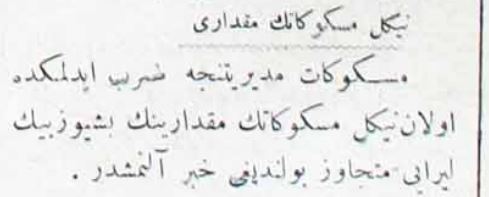 نیكل مسكوكاتك مقداری
مسكوكات مدیریتنجه ضرب ایدلمكده
اولان نیكل مسكوكاتك مقدارینك بشیوزبیك
لیرایی متجاوز بولندیغی خبر آلنمشدر .